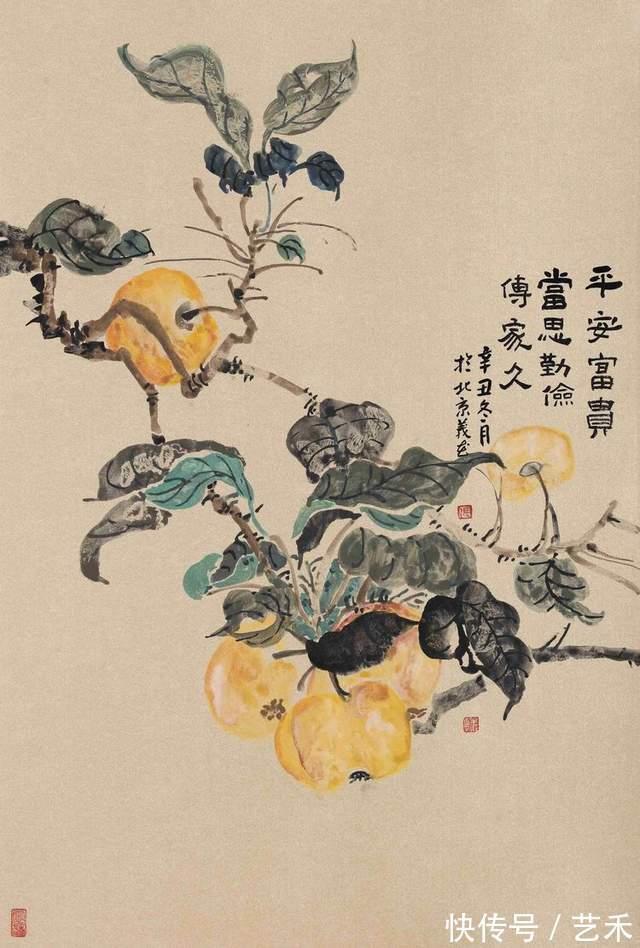 平安富貴
當思勤儉
傳家久
辛丑冬月
於北京義
快传号 / 艺禾